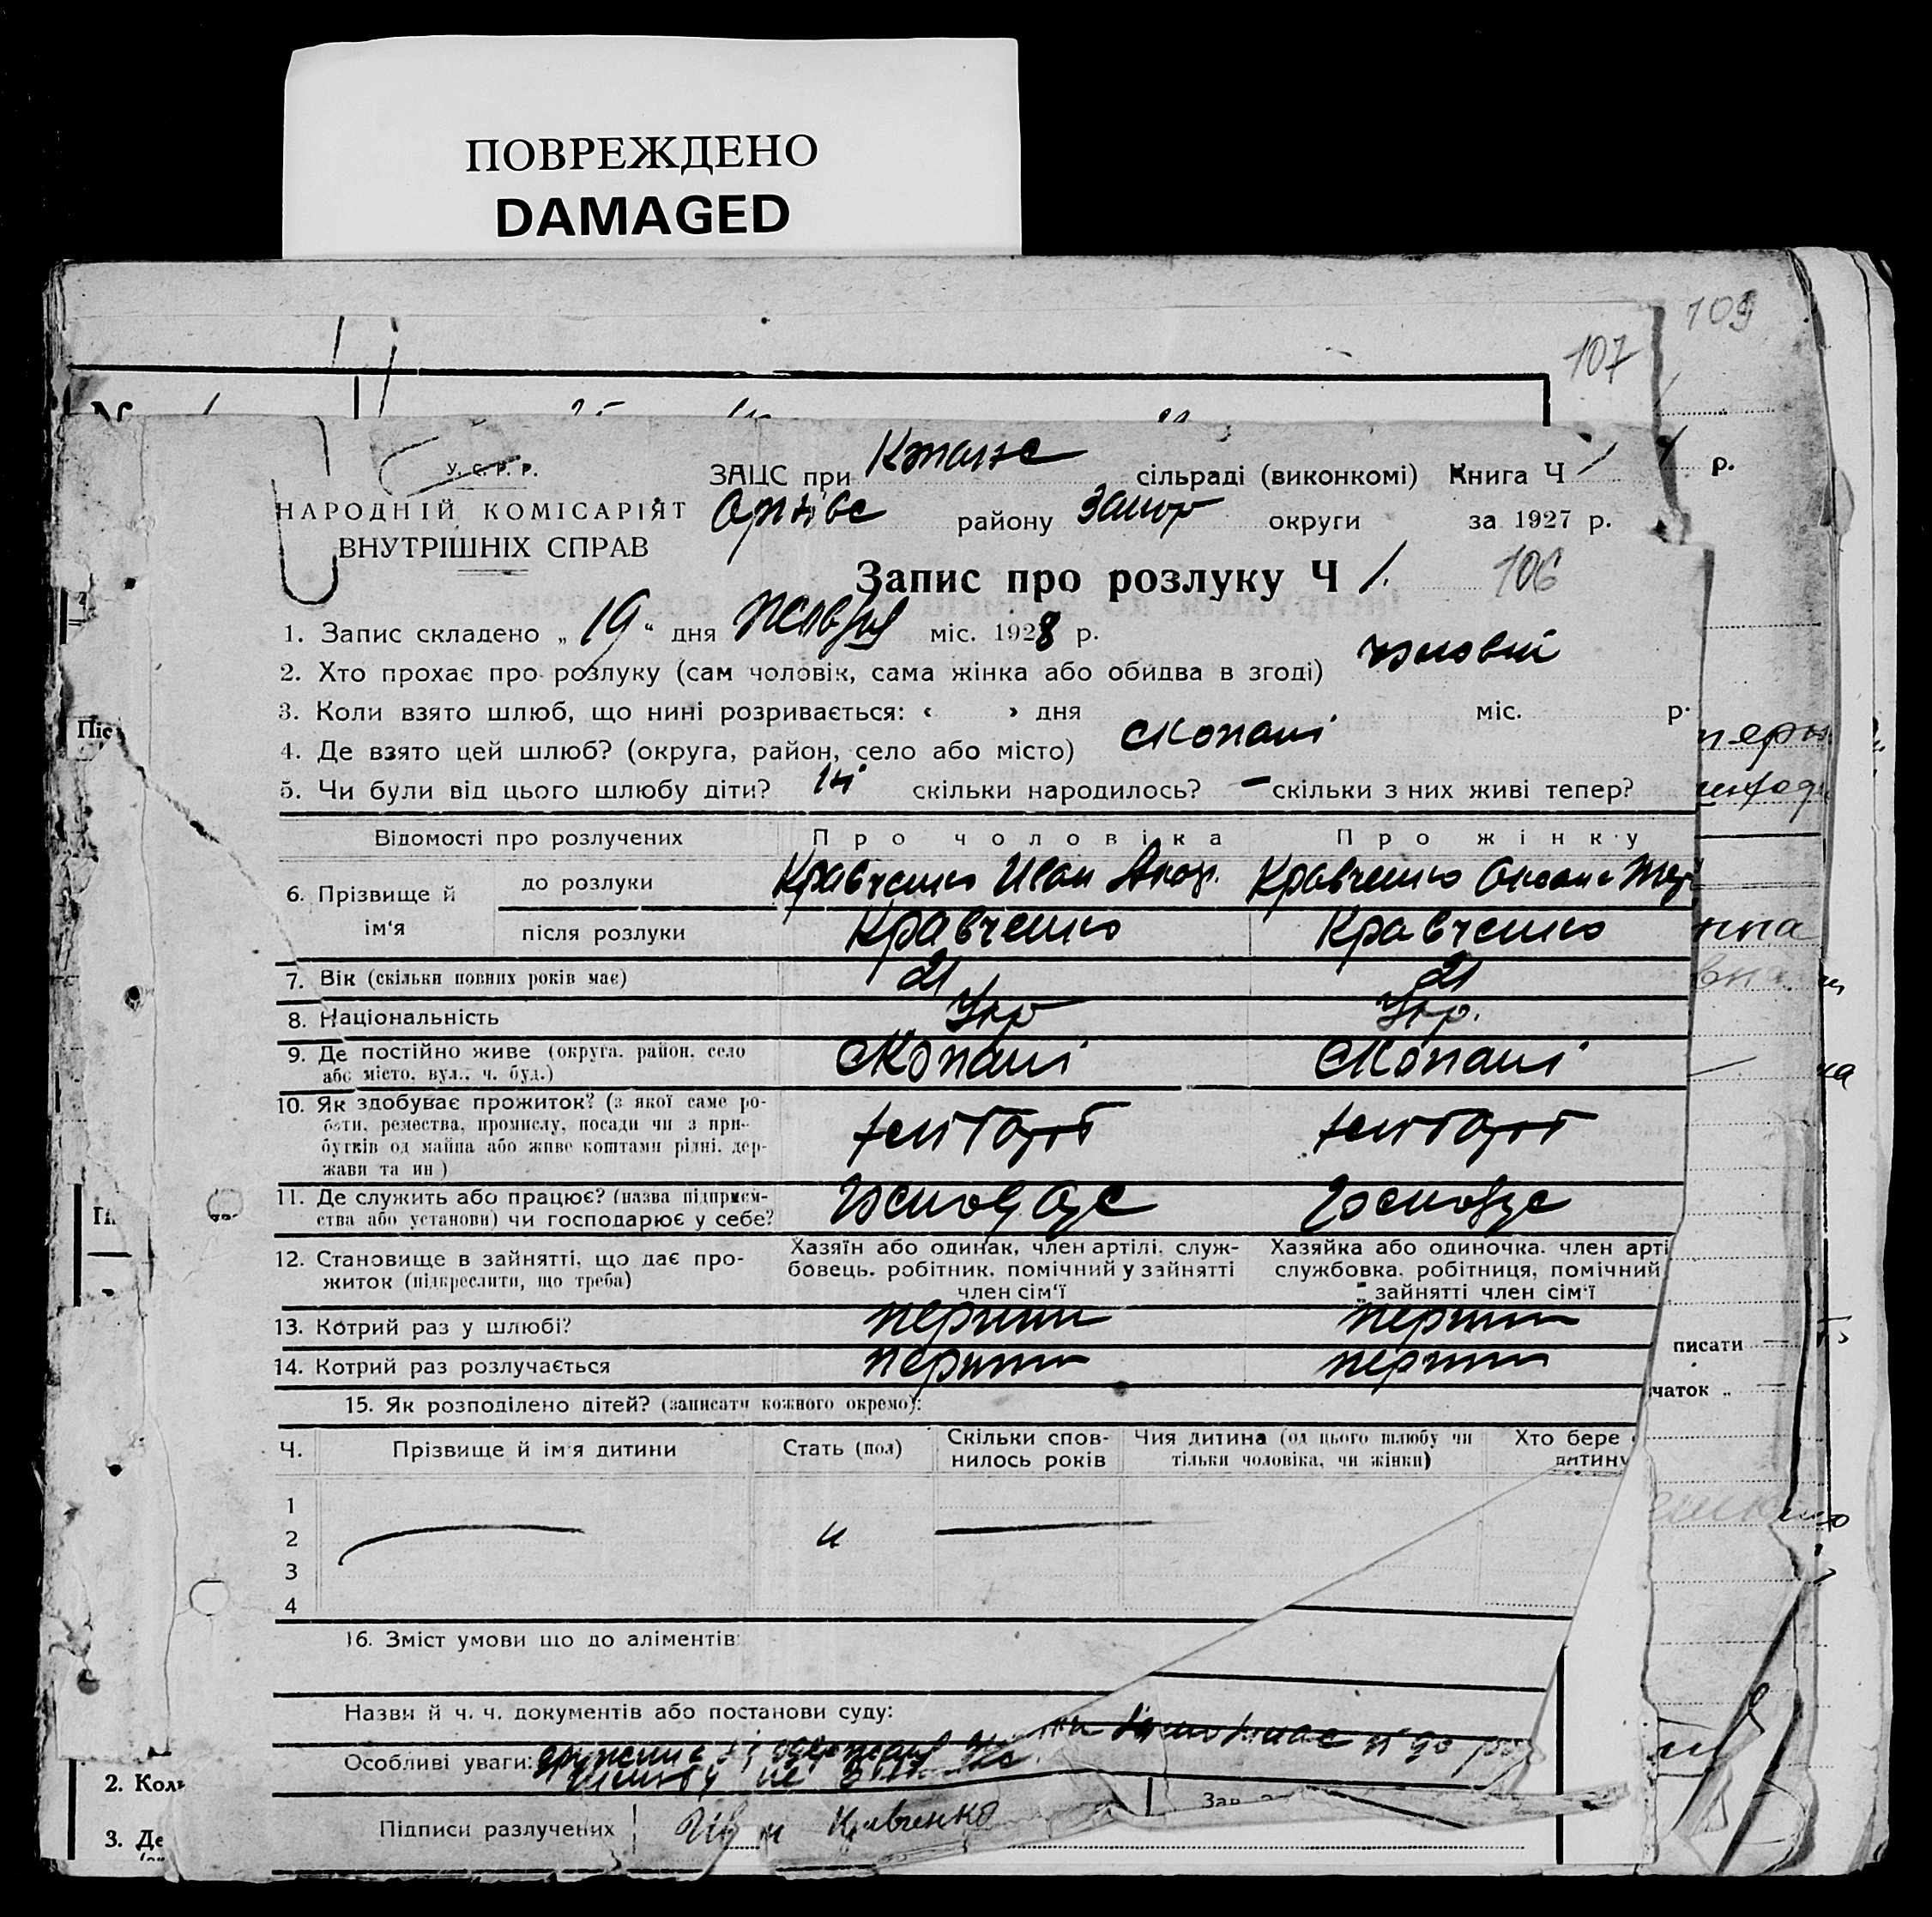 ПОВРЕЖДЕНО
DAMAGED
109
107
У. С. Р. Р.
ЗАЦС при сільраді (виконкомі) Книга Ч 1
р.
НАРОДНІЙ КОМІСАРІЯТ
району Запор округи за 1927 р.
ВНУТРІШНІХ СПРАВ
Запис про розлуку Ч 1. 106
1. Запис складено „ 19 “ дня жовтня міс. 1928 р.
2. Хто прохає про розлуку (сам чоловік, сама жінка або обидва в згоді) чоловік
3. Коли взято шлюб, що нині розривається: « » дня міс. р.
Піс
4. Де взято цей шлюб? (округа, район, село або місто) с Копані
5. Чи були від цього шлюбу діти? ні скільки народилось? – скільки з них живі тепер?
Відомості про розлучених
Про чоловіка
Про жінку
6. Прізвище й ім‘я
до розлуки
Кравченко Иван Кравченко Оксана
після розлуки
Кравченко Кравченко
7. Вік (скільки повних років має) 21 21
8. Національність Укр Укр.
9. Де постійно живе (округа, район, село
або місто, вул., ч. буд.)
с Копані с Копані
10. Як здобуває прожиток? (з якої саме ро-
боти, ремества, промислу, посади чи з при-
бутків од майна або живе коштами рідні, дер-
жави та ин)
11. Де служить або працює? (назва підприєм-
ства або установи) чи господарює у себе?
12. Становище в зайнятті, що дає про-
житок (підкреслити, що треба)
Хазяїн або одинак, член артілі, служ-
бовець, робітник, помічний у зайнятті
член сім‘ї
Хазяйка або одиночка, член арті
службовка, робітниця, помічний
зайнятті член сім‘ї
13. Котрий раз у шлюбі? перший перший
14. Котрий раз розлучається перший перший
писати
чаток „
15. Як розподілено дітей? (записати кожного окремо):
Ч.
Прізвище й ім‘я дитини
Стать (пол)
Скільки спов-
нилось років
Чия дитина (од цього шлюбу чи
тільки чоловіка, чи жінки)
Хто бере
дитину
1
2
3
4
16. Зміст умови що до аліментів:
Назви й ч. ч. документів або постанови суду:
Особливі уваги:
2. Коли
Зав.
Підписи разлучених Иван Кравченко
3. Де